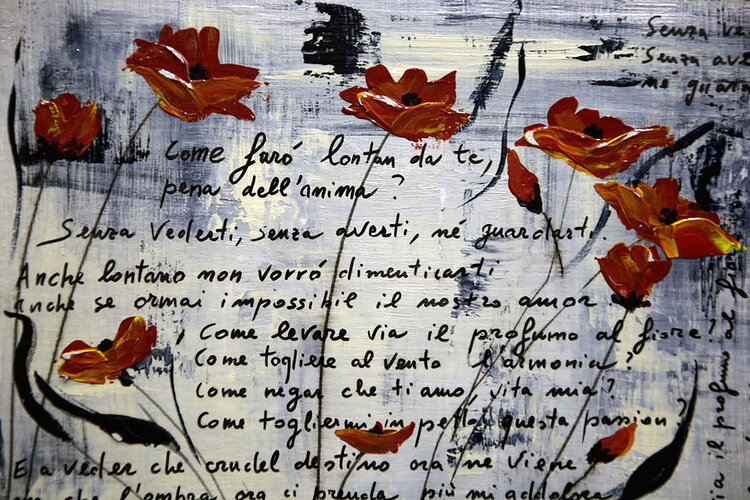 Come faró lontan da te,
pena dell'anima?
Senza vederti, senza averti, né guardarti.
Anche lontano non vorró dimenticarti
anche se ormai impossibil il nostro amor
Come levare via il profumo al fiore?
Come togliere al vento l'armonia?
Come negar che ti amo, vita mia?
Come togliermi in petto questa passion?
E a veder che crudel destino ora ne viene
che l'ombra ora ci prenda più mi
Senza ve
Senza ave
né guar
via il profumo al fior